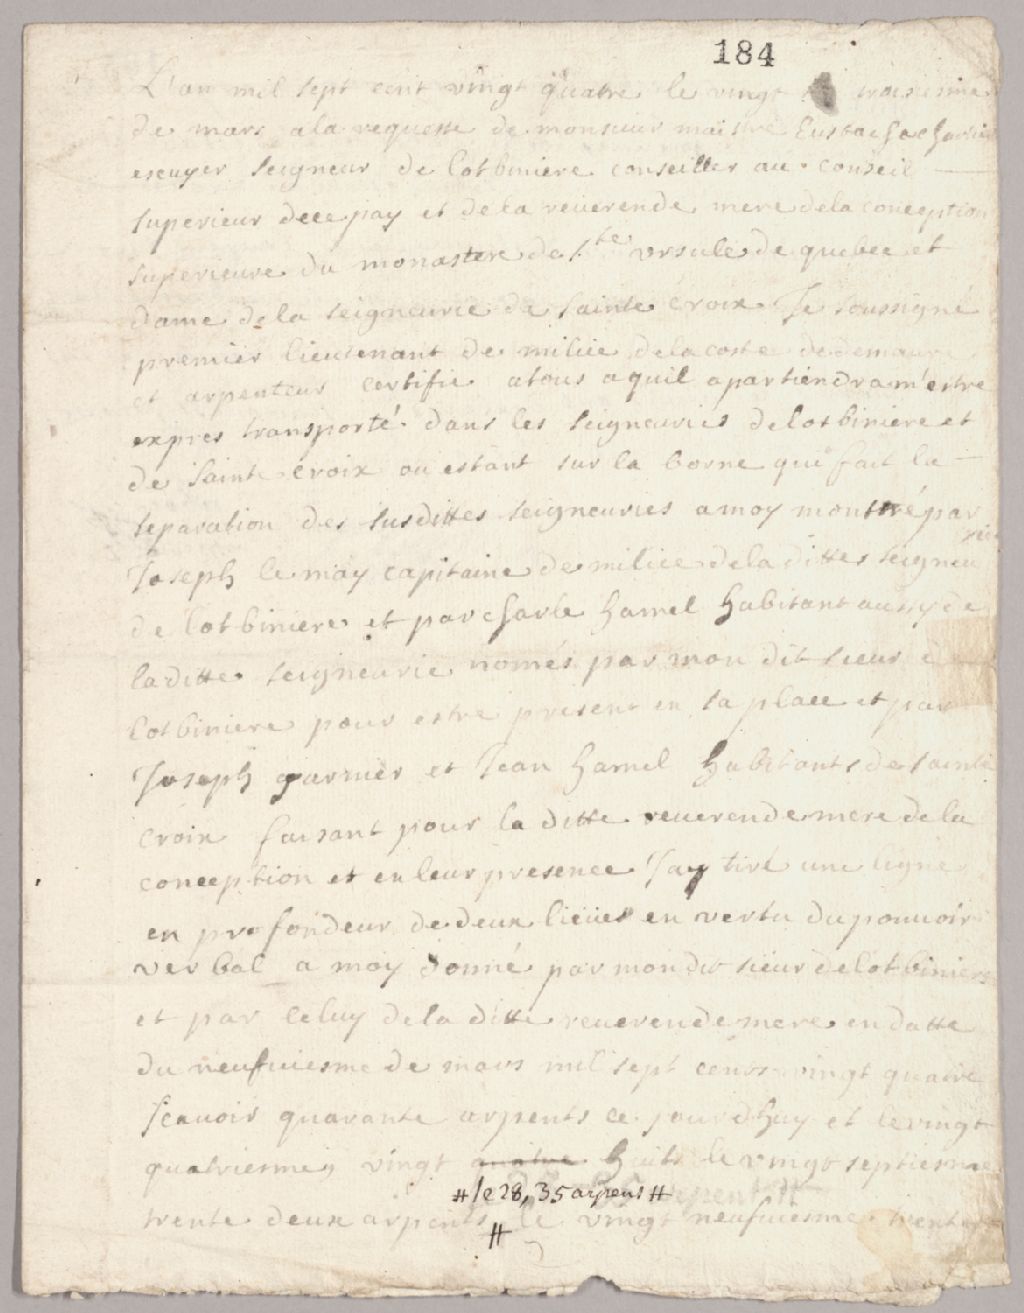 184
L'an mil sept cent vingt quatre le vingt troisiesme
de mars ala requeste de monsieur maistre Eustache Chartier
escuyer seigneur de lotbiniere conseiller au conseil
superieur de ce pay et de la reuerende mere dela conception
superieure du monastere de Ste ursule de quebec et
dame dela seigneurie de sainte croix Je soussigné
premier lieutenant de milice de la coste de demaure
et arpenteur certifie atous a quil apartiendra m'estre
expres transporté dans les seigneuries de lotbiniere et
de sainte croix ou estant sur la borne qui fait la
separation des susdittes seigneuries a moy montré par
Joseph le may capitaine de milice de la ditte seigneu
rie
de lotbiniere et par charle hamel habitant aussy de
laditte seigneurie només par mon dit sieur de
lotbiniere pour estre present en sa place et par
Joseph garnier et Jean hamel habitants de sainte
croix faisant pour la ditte reuerende mere de la
conception et en leur presence Jay tiré une ligne
en profondeur de deux lieües en vertu du pouuoir
verbal a moy donné par mondit sieur de lotbiniere
et par celuy de la ditte reuerende mere en datte
du neufuiesme de mars mil sept cents vingt quatre
scauoir quarante arpents ce jourdhuy et le vingt
quatriesme, vingt quatre huit le vingt septiesme
# le 28, 35 arpens #
trente deux arpents le vingt neufuiesme trente
#